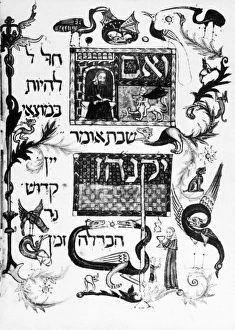 ואם
חל ל
להיות
במצאי
שבת אומר
יקנהז
יין
קדוש
נר
הבדלה זמן